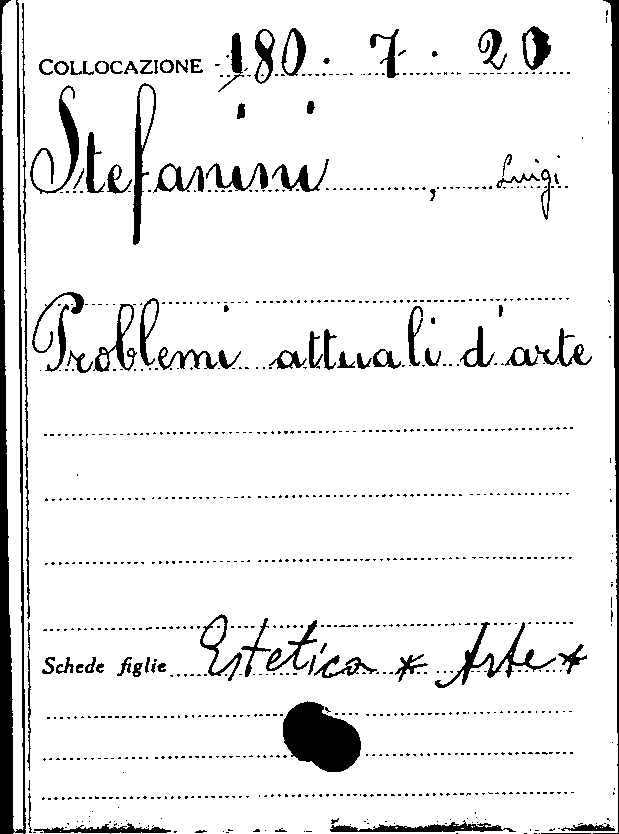 COLLOCAZIONE 180. 7. 20
Stefanini, Luigi
Problemi attuali d'arte
Schede figlie Estetica * Arte *